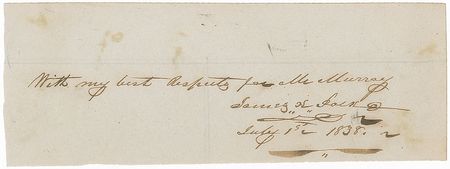 With my best Respects for Mr Murray
James K Polk
July 1st 1838.